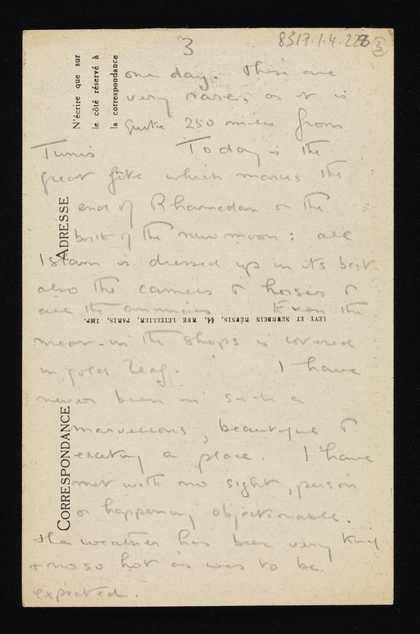 3
8317.1.4.223
3
N'écrire que sur
le côté réservé à
la correspondance
ADRESSE
CORRESPONDANCE
LEVY ET NEURDEIN RÉUNIS, 44, RUE LETELLIER, PARIS, IMP.
one day. These are
very rare, as it is
quite 250 miles from
Tunis Today is the
great fête which marks the
end of Rhamadan or the
birth of the new moon: all
Islam is dressed up in its best
also the camels & horses &
all the Even the
meat in the shops is covered
in gold leaf. I have
never been in such a
marvellous, beautiful &
exciting a place. I have
met with no sight, person
or happening objectionable.
The weather has been very kind
& not so hot as was to be
expected.